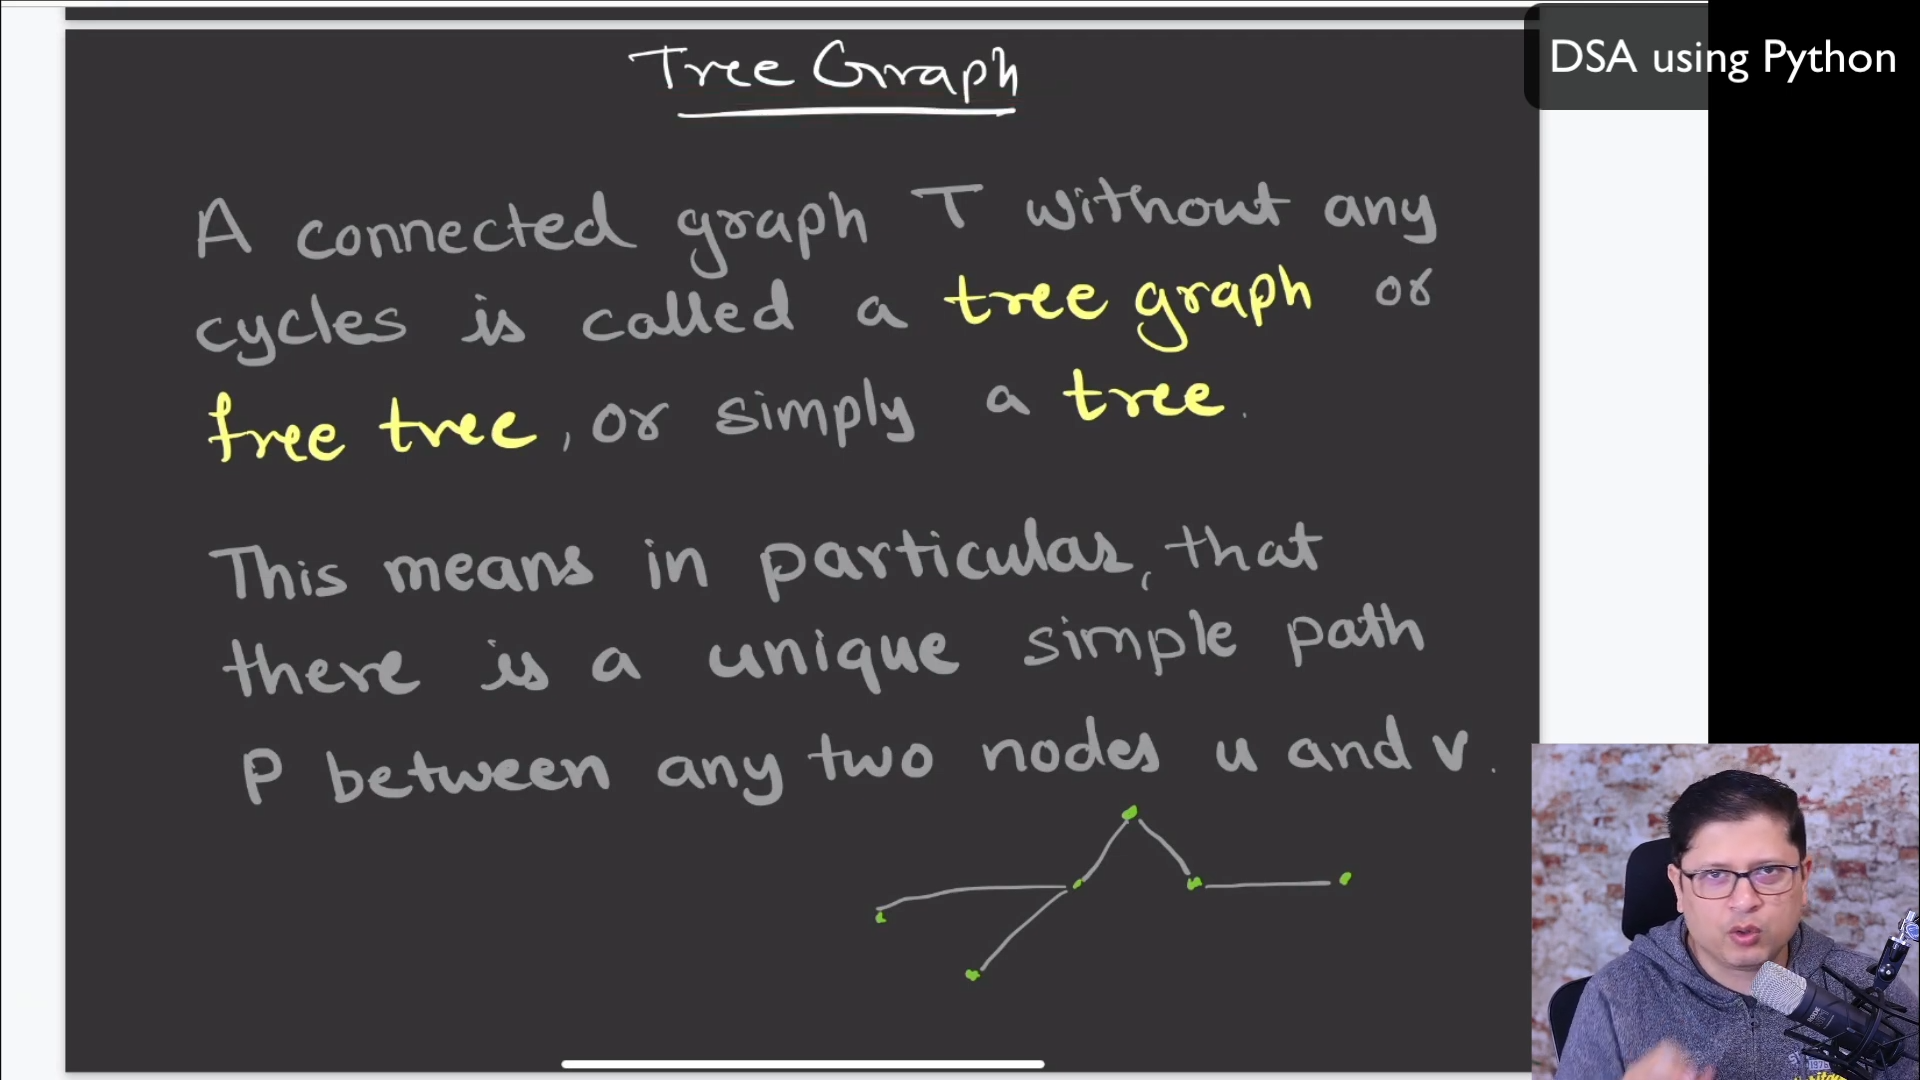 Tree Graph
DSA using Python
A connected graph T without any
cycles is called a tree graph or
free tree, or simply a tree.
This means in particular, that
there is a unique simple path
P between any two nodes u and v.